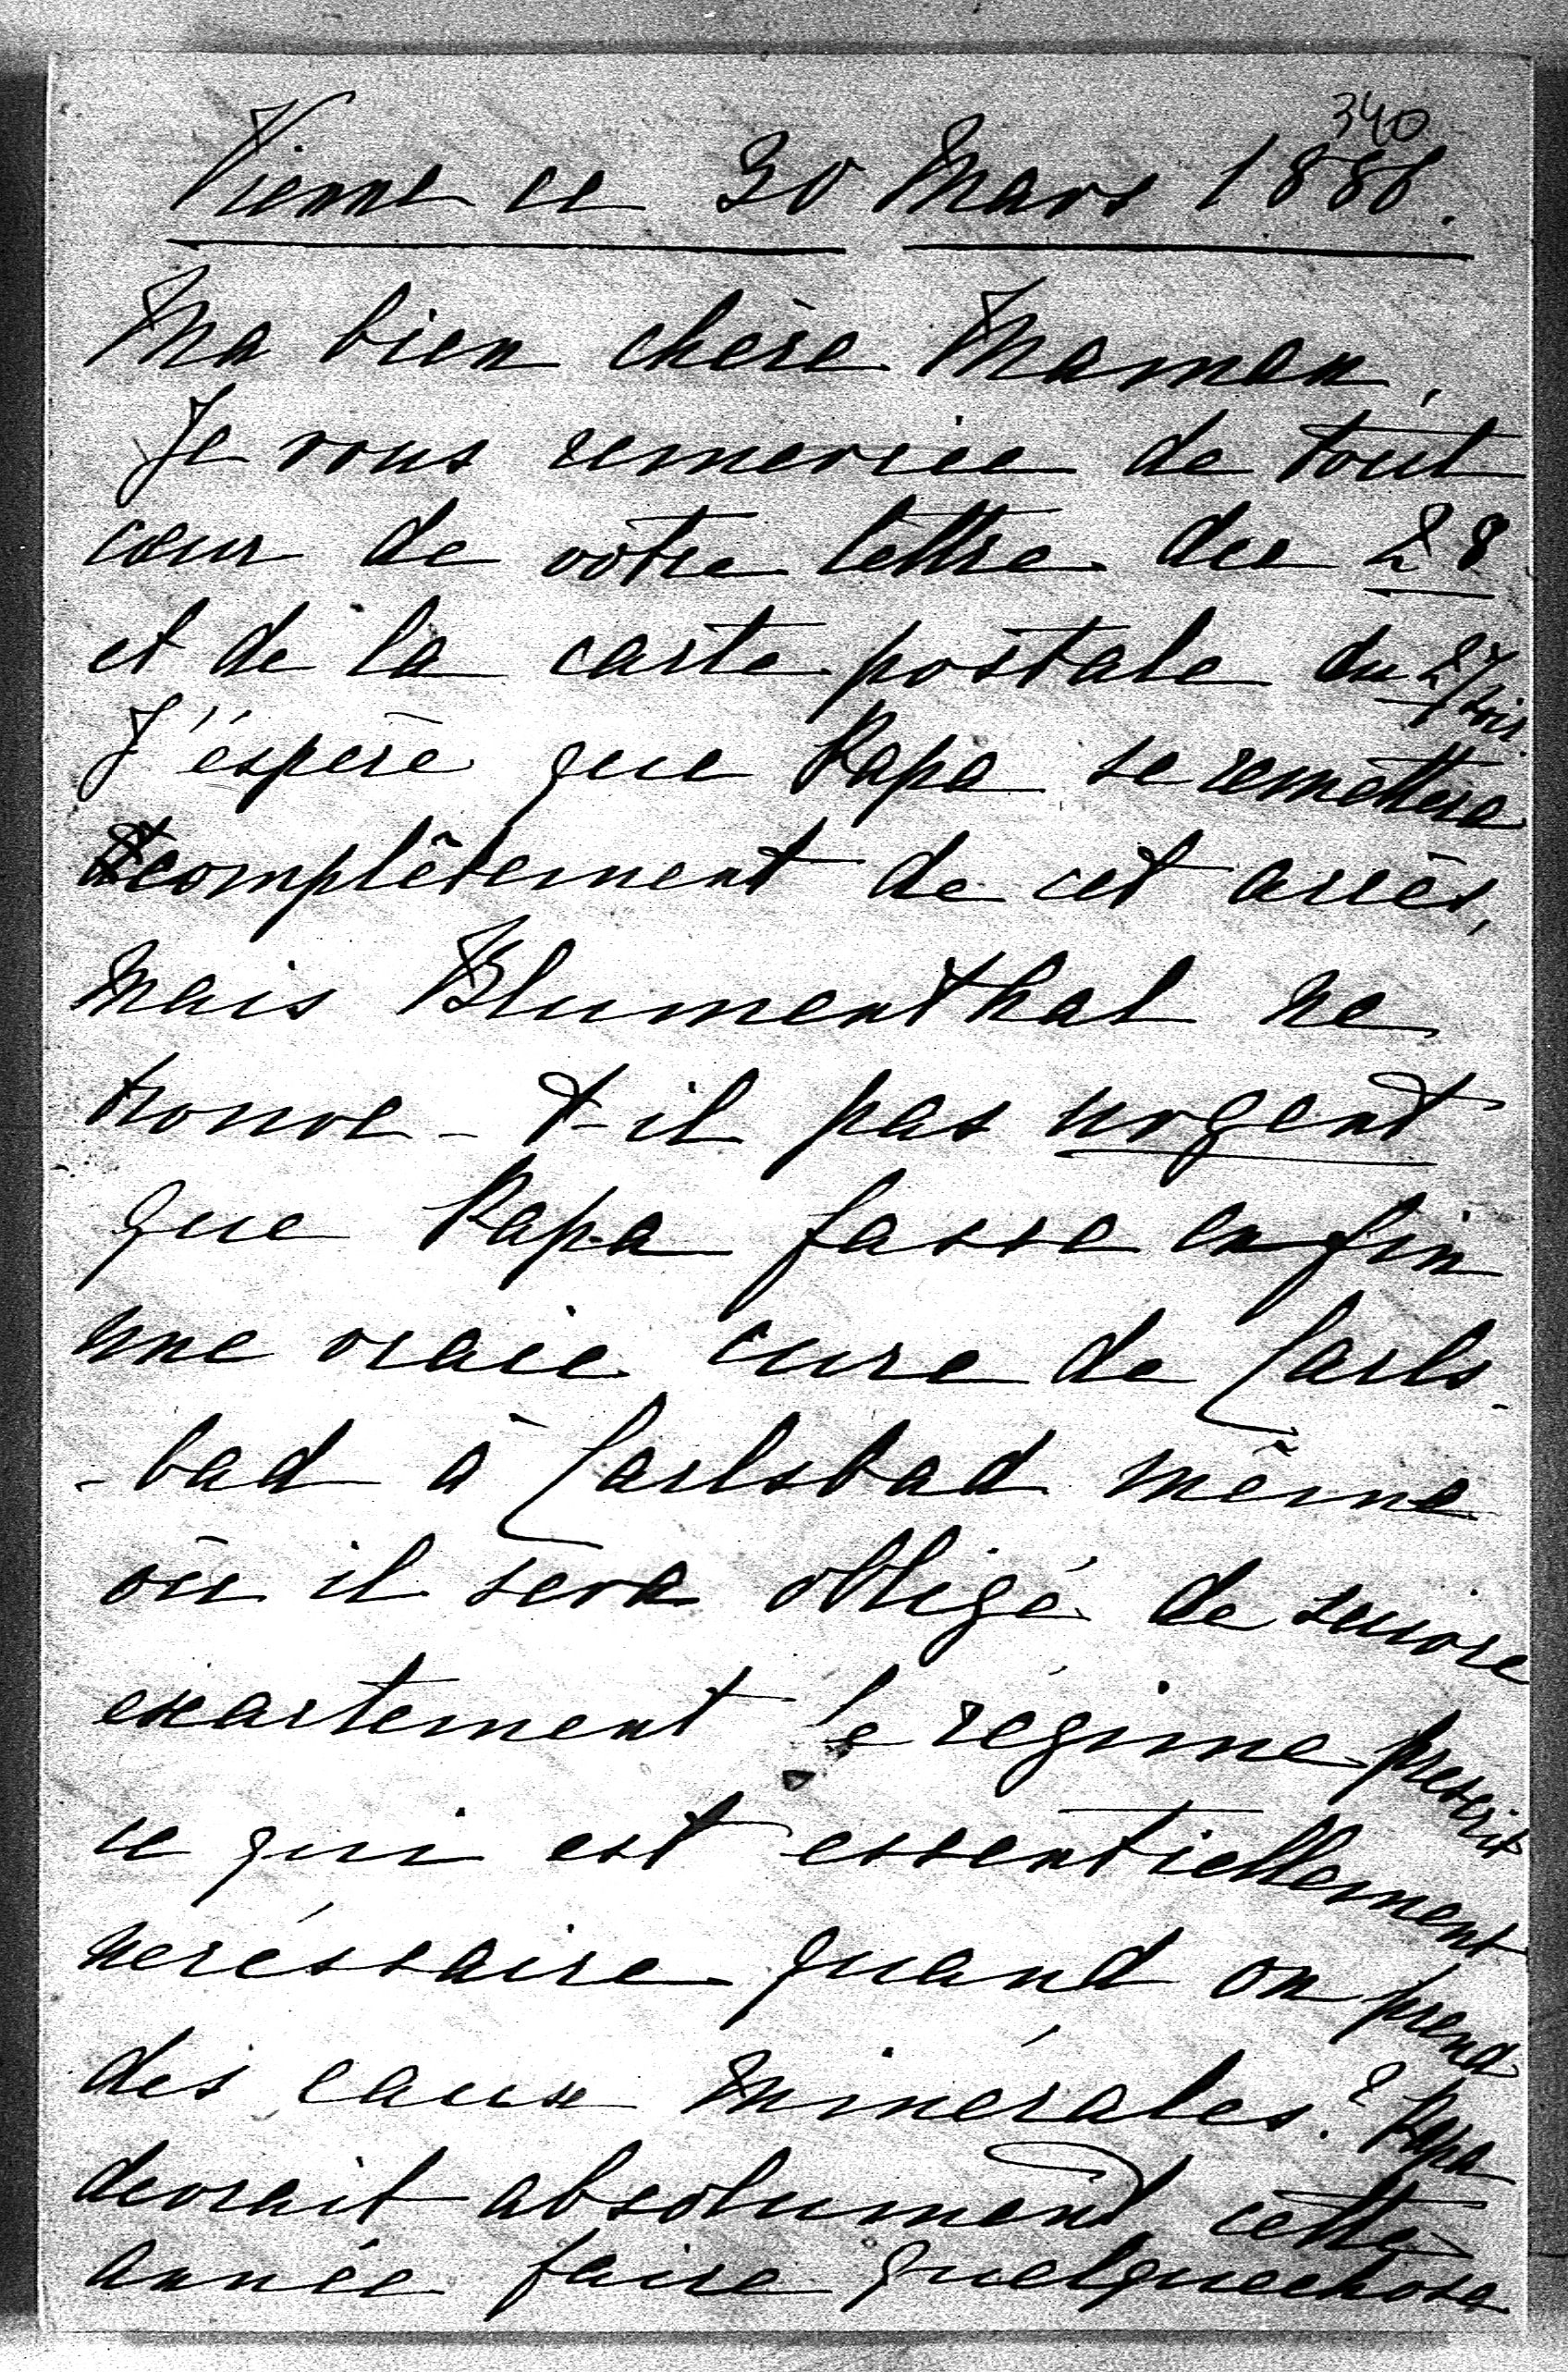 340
Vienne ce 30 Mars 1886.
Ma bien chère Maman,
Je vous remercie de tout
cœur de vôtre lettre du 28
et de la carte postale du 27/soir.
J'éspère que Papa se remettera
complêtement de cet accès,
mais Blumenthal ne
trouve-t-il pas urgent
que Papa fasse enfin
une vraie cure de Carls-
-bad à Carlsbad même
où il sera obligé de suivre
exactement le régime prescrit
ce qui est essentiellement
necéssaire quand on prend
des eaux minérales? Papa
devrait absolument cette
année faire quelquechose